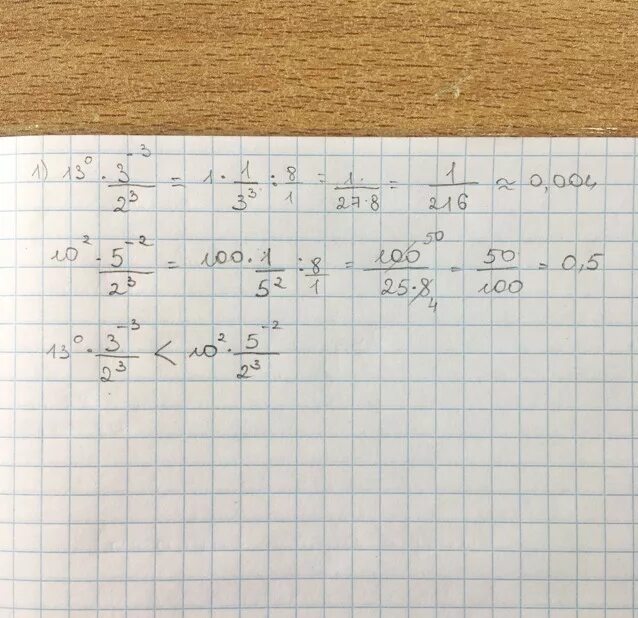 1) 13⁰ · 3⁻³/2³ = 1 · 1/3³ : 8/1 = 1/27·8 = 1/216 ≈ 0,004
10² · 5⁻²/2³ = 100 · 1/5² : 8/1 = 100 50/25·8 4 = 50/100 = 0,5
13⁰ · 3⁻³/2³ < 10² · 5⁻²/2³